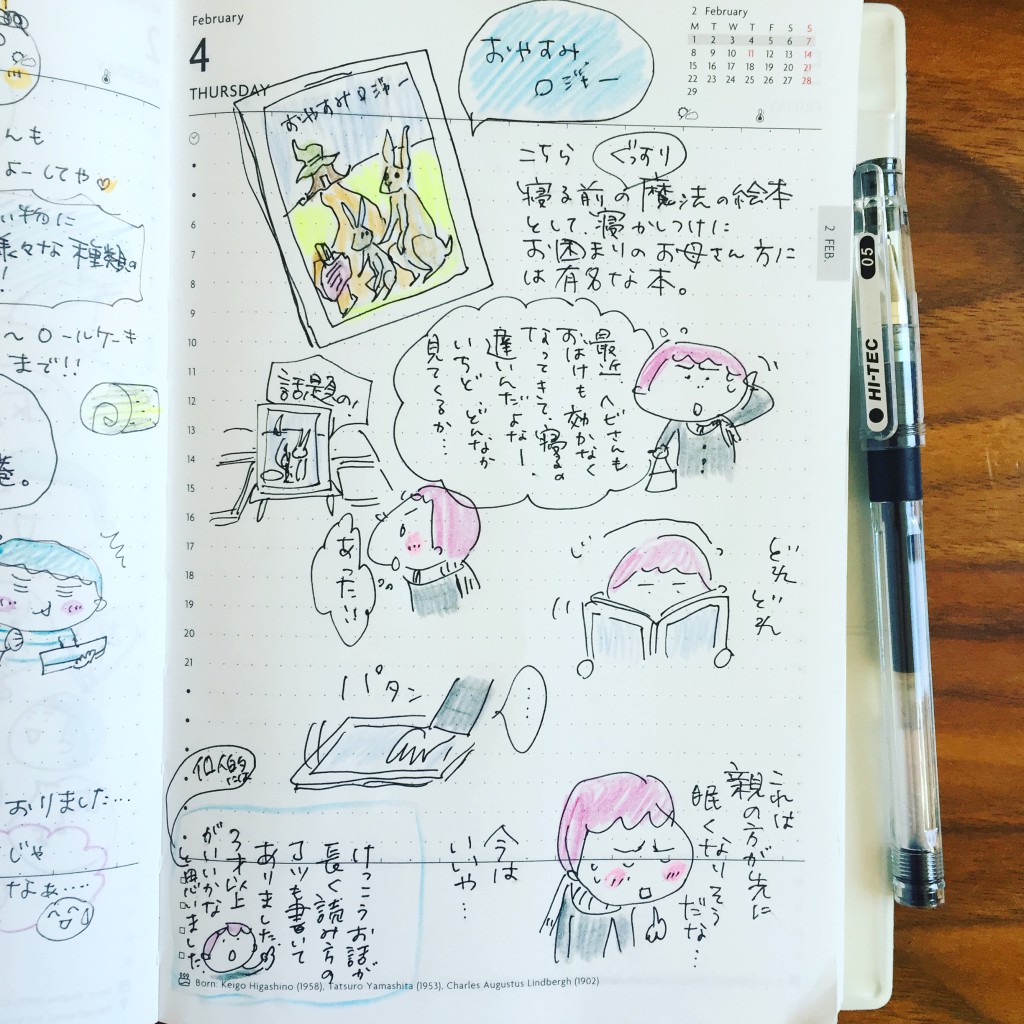 February
4
THURSDAY
2 February
M T W T F S S
1 2 3 4 5 6 7
8 9 10 11 12 13 14
15 16 17 18 19 20 21
22 23 24 25 26 27 28
29
おやすみ
ロジャー
おやすみロジャー
こちら ぐっすり
寝る前の魔法の絵本
として、寝かしつけに
お困まりのお母さん方に
は有名な本。
6
7
8
9
10
11
12
13
14
15
16
17
18
19
20
21
2 FEB.
最近、ヘビさんも
おばけも効かなく
なってきて、寝るの
遅いんだよなー。
いちど、どんなか
見てくるか…
話題の!
あった!!
どれ
どれ
パタン
……
これは
親の方が先に
眠くなりそう
だな…
今は
いいや…
個人的
には
けっこうお話が
長く読み方の
コツも書いて
ありました。
3才以上
がいいかな
と思いました
Born: Keigo Higashino (1958), Tatsuro Yamashita (1953), Charles Augustus Lindbergh (1902)
んも
よーしてや
い物に
様々な種類の
!
〜ロールケーキ
まで!!
巻。
おりました…
じゃ
なぁ….
HI-TEC
05